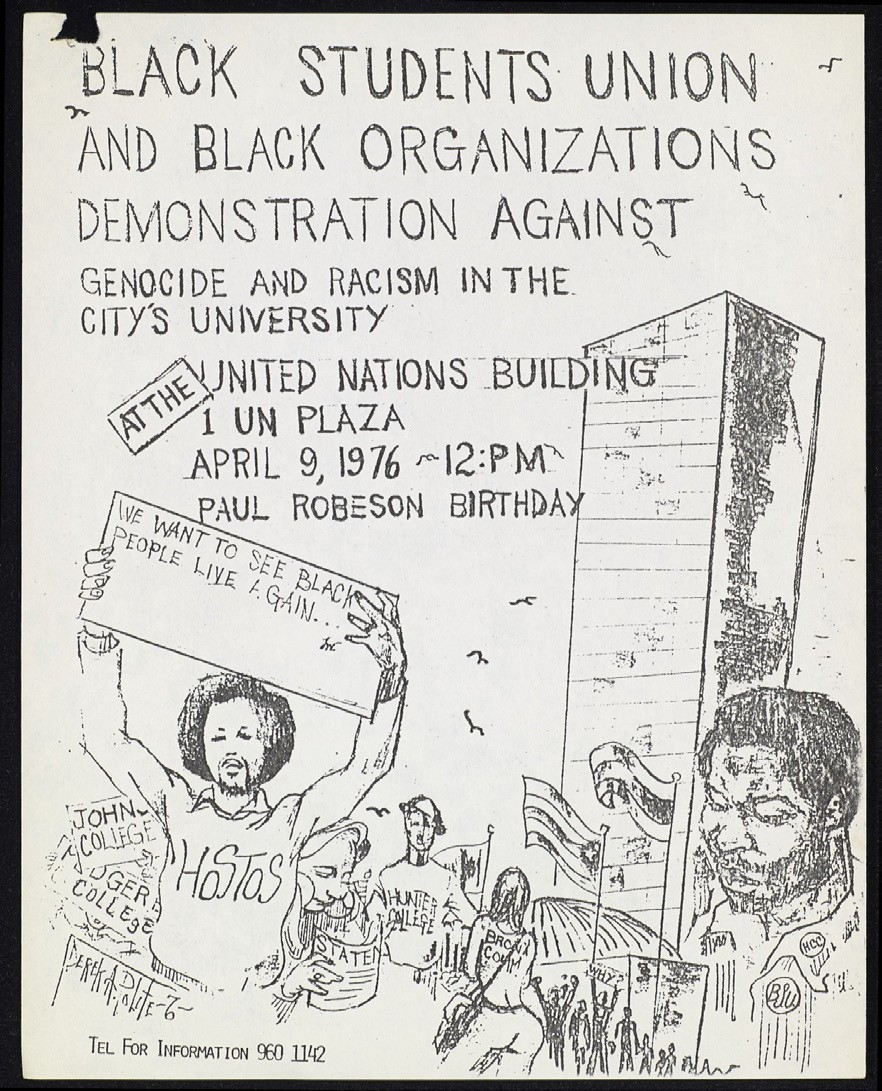 BLACK STUDENTS UNION
AND BLACK ORGANIZATIONS
DEMONSTRATION AGAINST
GENOCIDE AND RACISM IN THE
CITY'S UNIVERSITY
AT THE
UNITED NATIONS BUILDING
1 UN PLAZA
APRIL 9, 1976 ~12:PM~
PAUL ROBESON BIRTHDAY
WE WANT TO SEE BLACK
PEOPLE LIVE AGAIN...
JOHN
COLLEGE
HOSTOS
COLLEGE
HUNTER
COLLEGE
STATEN
BRONX
COMM
WHY?
HCC
BPU
TEL FOR INFORMATION 960 1142